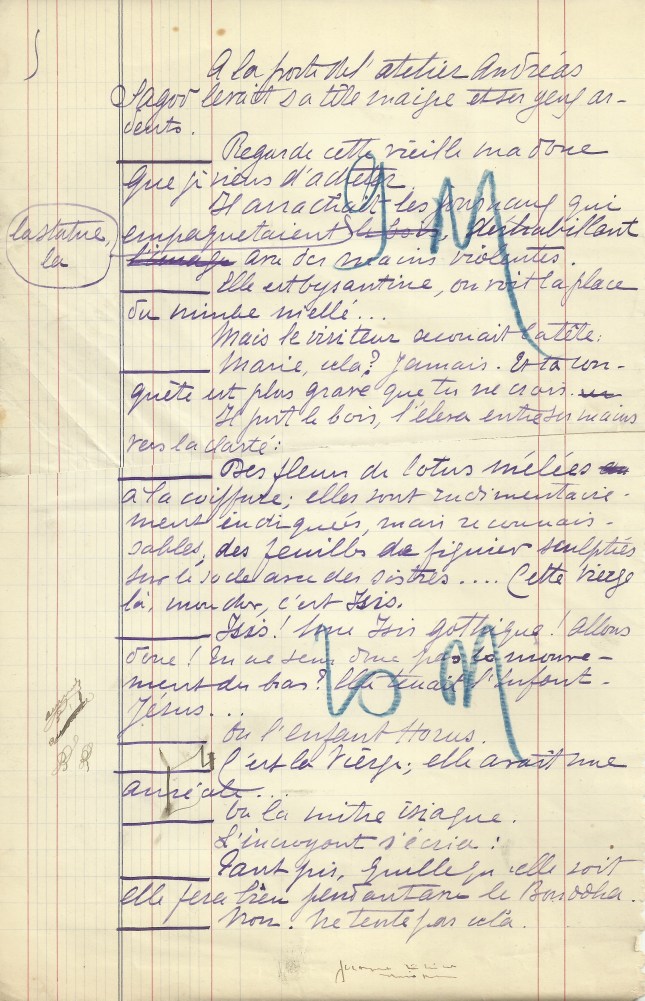 A la porte de l'atelier Andréas
Sagov levait sa tête maigre et ses yeux ar-
dents.
Regarde cette vieille madone
que je viens d'acheter
Il arrachait les journaux qui
la statue,
la
empaquetaient le bois, déshabillant
l'image avec des mains violentes.
Elle est bysantine, on voit la place
du nimbe niellé...
Mais le visiteur secouait la tête:
Marie, cela? Jamais. Et ta con-
quête est plus grave que tu ne crois.
Il prit le bois, l'éleva entre ses mains
vers la clarté:
Des fleurs de lotus mêlées
à la coiffure; elles sont rudimentaire-
ment indiquées, mais reconnais-
sables, des feuilles de figuier sculptées
sur le socle avec des sistres.... Cette vierge
là, mon cher, c'est Isis.
Isis! Une Isis gothique! Allons
donc! Tu ne sens donc pas le mouve-
ment du bas? Elle tenait l'Enfant-
Jesus...
Ou l'enfant Horus.
C'est la Vierge; elle avait une
auréole...
Ou la mitre isiaque.
L'incroyant s'écria:
Tant pis, quelle qu'elle soit
elle fera bien pendant avec le Bouddha.
Non. Ne tente pas cela.
9 M
10 M